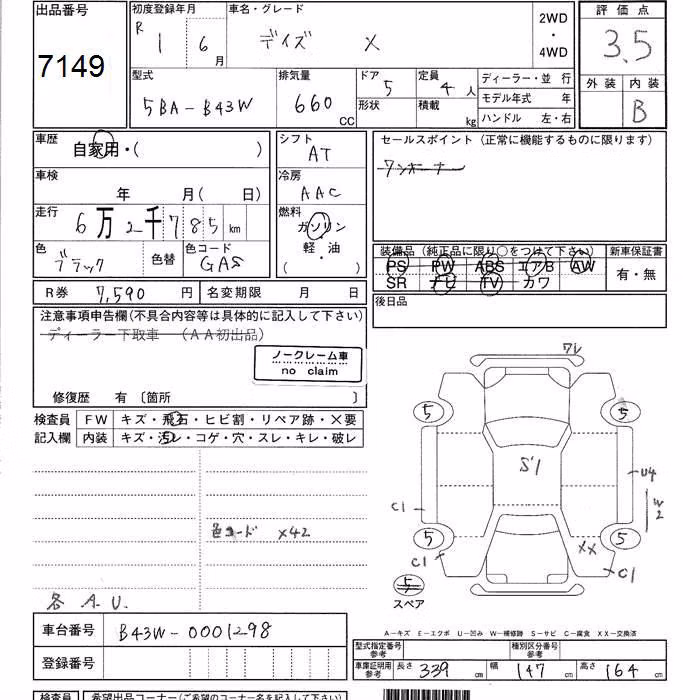 出品番号
7149
初度登録年月
R 1 6月
車名・グレード
デイズ X
2WD
・
4WD
評価点
3.5
外装 内装
B
型式
5BA-B43W
排気量
660 CC
ドア
5
形状
定員
4人
積載
kg
ディーラー・並行
モデル年式 年
ハンドル 左・右
車歴
自家用・( )
シフト
AT
セールスポイント (正常に機能するものに限ります)
ワンオーナー
車検
年 月( 日)
冷房
AAC
走行
6万2千785km
燃料
ガソリン
軽・油
( )
色
ブラック
色替
色コード
GAS
装備品 (純正品に限り○をつけて下さい)
PS PW ABS エアB AW
SR ナビ TV カワ
新車保証書
有・無
R券 7,590 円
名変期限 月 日
後日品
注意事項申告欄(不具合内容等は具体的に記入して下さい)
ディーラー下取車 (AA初出品)
ノークレーム車
no claim
修復歴 有 〔箇所 〕
検査員
記入欄
FW キズ・飛石・ヒビ割・リペア跡・×要
内装 キズ・汚レ・コゲ・穴・スレ・キレ・破レ
色コード X42
各 A.U.
ワレ
5
5
S'1
U4
W2
C1
5
5
XX
C1
C1
5
スペア
A-キズ E-エクボ U-凹み W-補修跡 S-サビ C-腐食 XX-交換済
車台番号 B43W-0001298
登録番号
型式指定番号
参考
種別区分番号
参考
車庫証明用
参考
長さ 339 cm
幅 147 cm
高さ 164 cm
検査員
希望出品コーナー(ご希望のコーナー名を記入下さい)